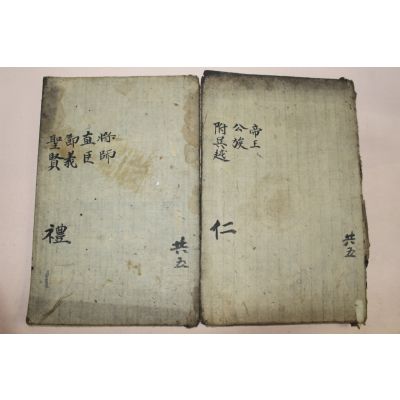 帝王
公族
附吳越
仁
共五
將帥
直臣
節義
聖賢
禮
共五